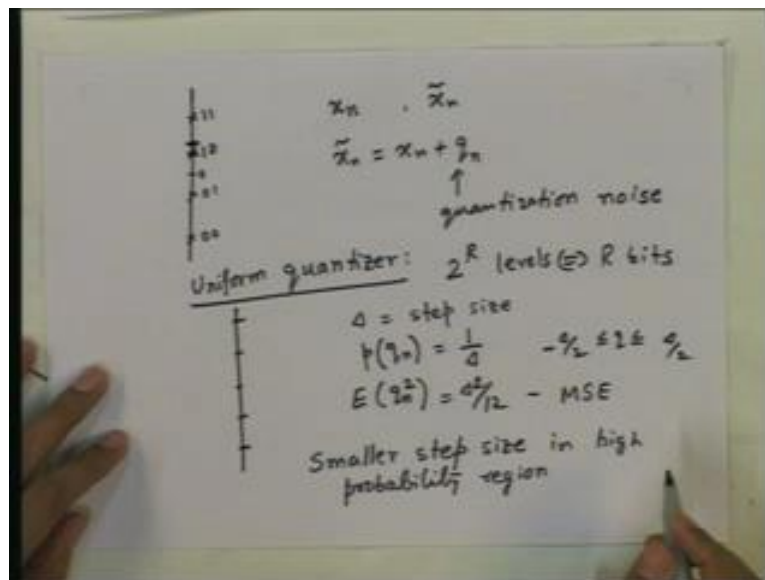 11
xₙ , x̃ₙ
10
x̃ₙ = xₙ + qₙ
0
01
↑
quantization noise
00
Uniform quantizer: 2^R levels (=) R bits
Δ = step size
p(qₙ) = 1/Δ -Δ/2 ≤ q ≤ Δ/2
E(qₙ²) = Δ²/12 - MSE
Smaller step size in high
probability region